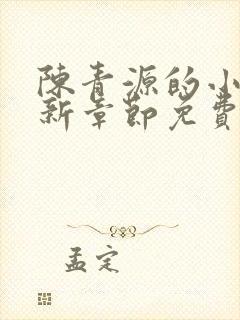 陳青源的小
新章節免費
孟定